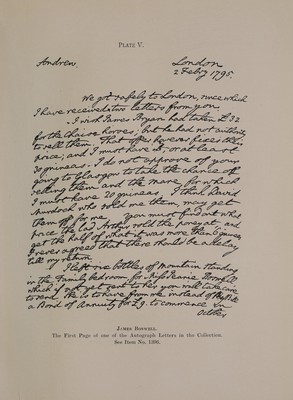 PLATE V.
Andrew. London
2 Febry 1795.
We got safely to London, since which
I have received two letters from you.
I wish James Bryan had taken £32
for the chaise horses; but he had not authority
to sell them. That offer however fixes their
price; and I must have it, or at least
30 guineas. I do not approve of your
going to Glasgow to take the chance of
selling them and the mare for which
I must have 20 guineas. I think David
Murdoch who sold me them, may get
them off for me. You must find out what
price the Lad Arthur sold the poney at, and
get the half of what it was more than 6 guineas.
I never agreed that there should be a delay
till my return.
I left six bottles of Mountain standing
in the Family bedroom for
which if not yet sent to her you will take care
to send. She is to have from me instead of
a Bond of Annuity for £9. to commence
October
JAMES BOSWELL.
The First Page of one of the Autograph Letters in the Collection.
See Item No. 1098.